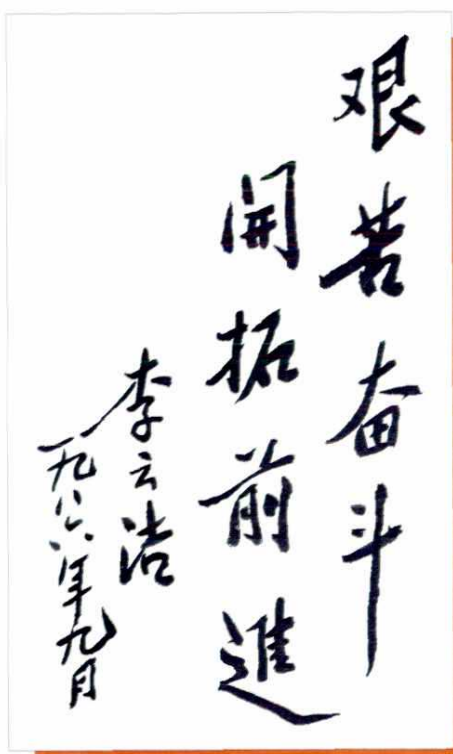 艰苦奋斗
開拓前進
李云洁
一九八六年九月